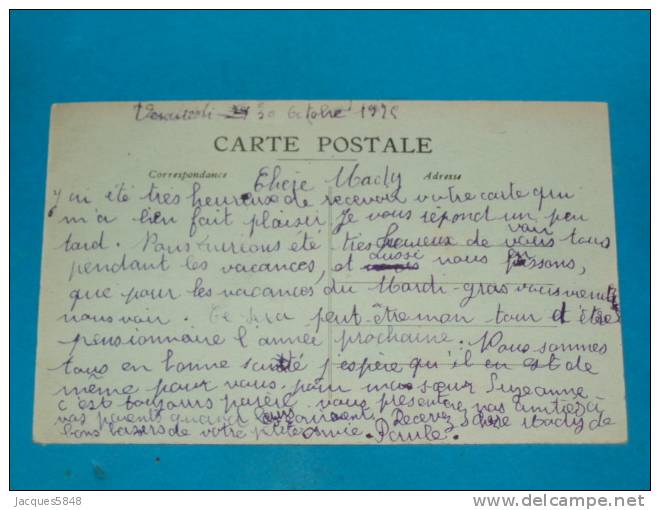 Vendredi 30 Octobre 1925
CARTE POSTALE
Correspondance Adresse
Chere Mady
j'ai été très heureuse de recevoir votre carte qui
m'a bien fait plaisir je vous répond un peu
tard. Nous aurions été très heureux de voir vous tous
pendant les vacances, et aussi nous pensons,
que pour les vacances du Mardi-gras vous viendrez
nous voir. Ce sera peut-être mon tour d'être
pensionnaire l'année prochaine. Nous sommes
tous en bonne santé j'espère qu'il en est de
même pour vous. pour ma sœur Suzanne
c'est toujours pareil. vous présenterez nos amitiés à
vos parents quand Recevez chère Mady de
bons baisers de votre petite amie. Paule.
Jacques5848
www.delcampe.net